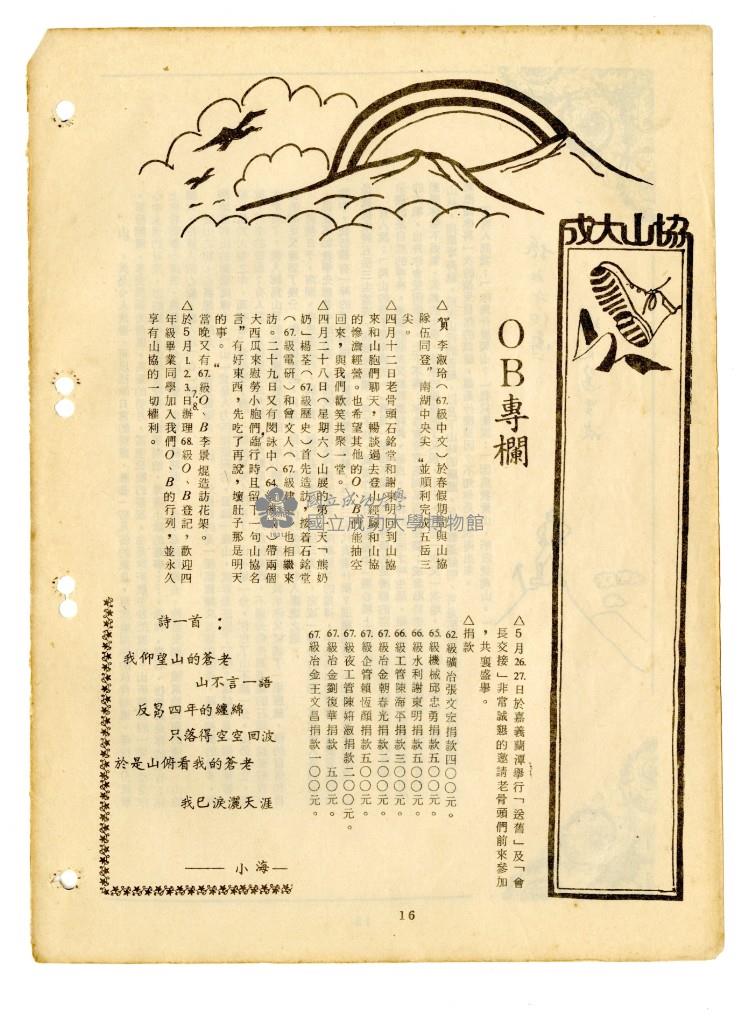 成大山協
OB專欄
△賀 李淑玲（67.級中文）於春假期間與山協
隊伍同登“南湖中央尖”並順利完成五岳三
尖。
△四月十二日老骨頭石銘堂和謝東明回到山協
來和山胞們聊天，暢談過去登山經驗和山協
的慘澹經營。也希望其他的O、B們能抽空
回來，與我們歡笑共聚一堂。
△四月二十八日（星期六）山展的第一天「熊奶
奶」楊荃（67.級歷史）首先造訪，接着石銘堂
（67.級電研）和曾文人（67.級建）也相繼來
訪。二十九日又有閔詠中（64.）帶兩個
大西瓜來慰勞小胞們，臨行時且留下一句山協名
言“有好東西，先吃了再說，壞肚子那是明天
的事。”
當晚又有67.級O、B李景焜造訪花架。
△於5月1.2.3.7.8.日辦理68.級O、B登記，歡迎四
年級畢業同學加入我們O、B的行列，並永久
享有山協的一切權利。
△5月26.27.日於嘉義蘭潭舉行「送舊」及「會
長交接」非常誠懇的邀請老骨頭們前來參加
，共襄盛舉。
△捐款
62.級礦冶張文宏捐款四〇〇元。
65.級機械邱忠勇捐款五〇〇元。
66.級水利謝東明捐款五〇〇元。
66.級工管陳海平捐款三〇〇元。
67.級冶金朝春光捐款二〇〇元。
67.級企管賴恆顏捐款五〇〇元。
67.級夜工管陳姷淑捐款二〇〇元。
67.級冶金劉復華捐款 五〇元。
67.級冶金王文昌捐款一〇〇元。
詩一首：
我仰望山的蒼老
山不言一語
反芻四年的纏綿
只落得空空回波
於是山俯看我的蒼老
我已淚灑天涯
——小海—
16
國立成功大學
國立成功大學博物館